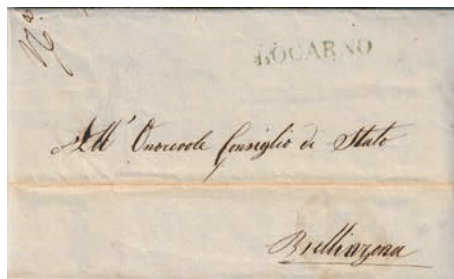 N.º
LOCARNO
All' Onorevole Consiglio di Stato
Bellinzona